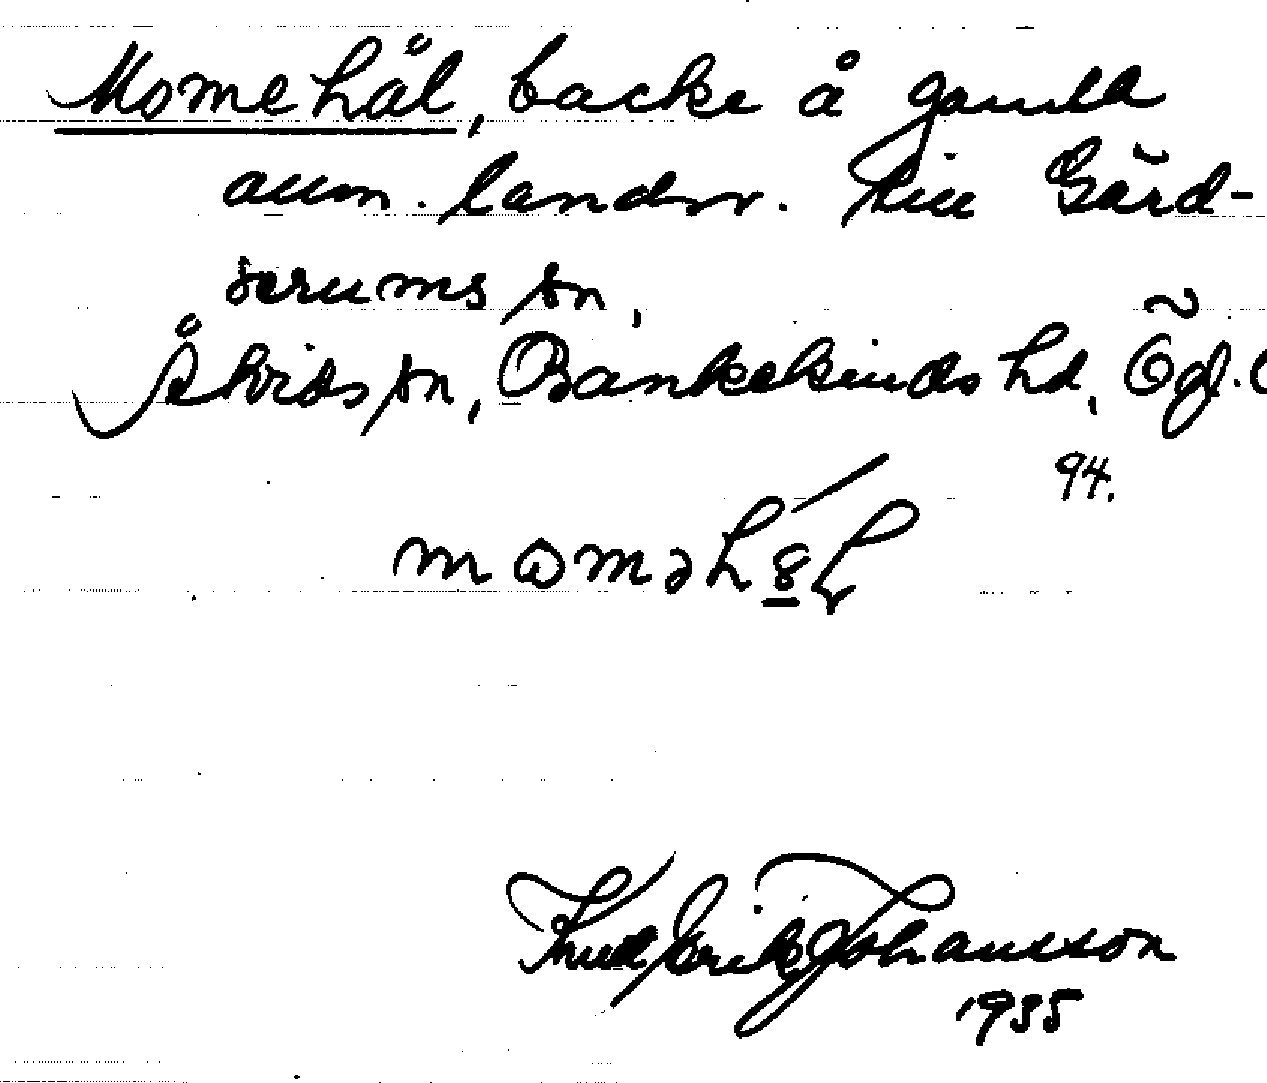 Momehål, backe å gamla
allm. landsv. till Gärd-
serums sn,
Åtvids sn, Bankekinds hd, Ögl.
94.
Knut Erik Johansson
1935